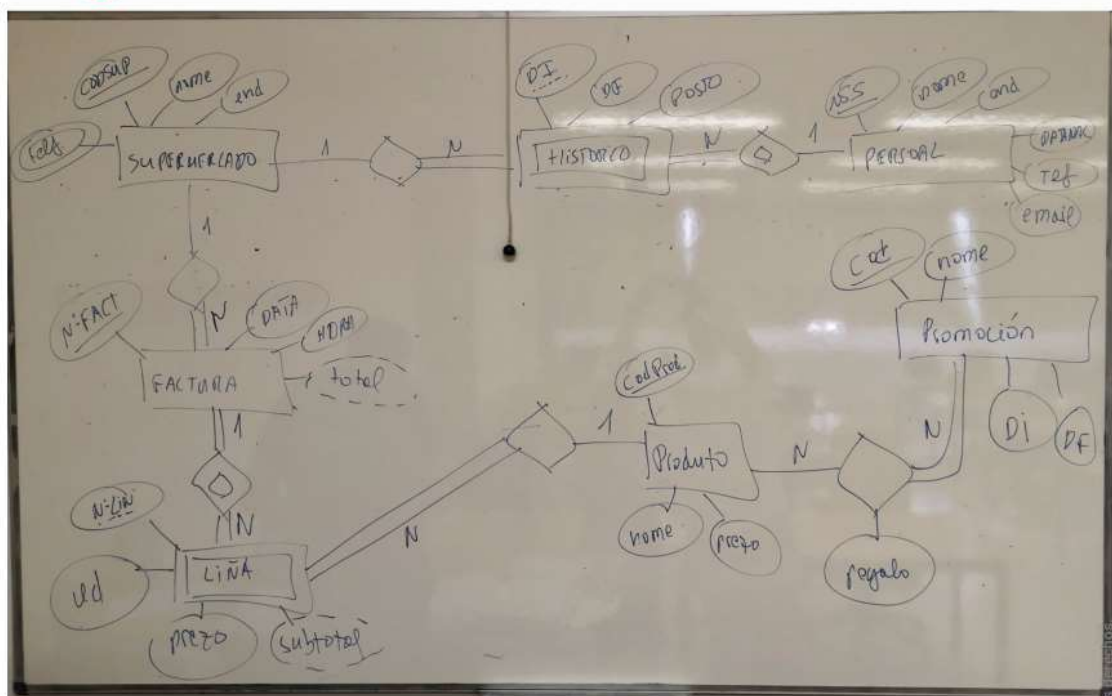 CODSUP
nome
end
SUPERMERCADO
1
N
DI
DF
POSTO
HISTORCO
N
1
NSS
nome
end
PERSOAL
Tef
email
1
N
N-FACT
DATA
HORA
FACTURA
total
1
N
N-LIN
LIÑA
ud
prezo
subtotal
N
1
CodProd.
Produto
nome
prezo
N
N
regalo
nome
Promoción
DI
DF